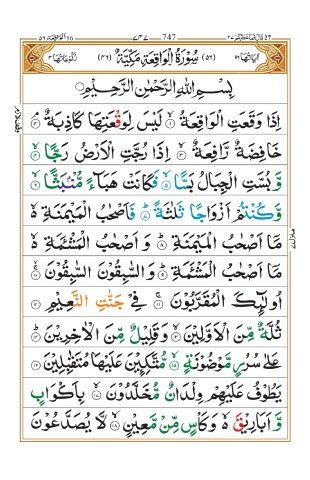 747
سُوْرَةُ الْوَاقِعَةِ مَكِّيَّةٌ
بِسْمِ اللّٰهِ الرَّحْمٰنِ الرَّحِيْمِ
اِذَا وَقَعَتِ الْوَاقِعَةُ ۙ﴿۱﴾ لَيْسَ لِوَقْعَتِهَا كَاذِبَةٌ ۘ﴿۲﴾
خَافِضَةٌ رَّافِعَةٌ ۙ﴿۳﴾ اِذَا رُجَّتِ الْاَرْضُ رَجًّا ۙ﴿۴﴾
وَّ بُسَّتِ الْجِبَالُ بَسًّا ۙ﴿۵﴾ فَكَانَتْ هَبَآءً مُّنْۢبَثًّا ۙ﴿۶﴾
وَّ كُنْتُمْ اَزْوَاجًا ثَلٰثَةً ؕ﴿۷﴾ فَاَصْحٰبُ الْمَيْمَنَةِ ۙ۬
مَاۤ اَصْحٰبُ الْمَيْمَنَةِ ؕ﴿۸﴾ وَ اَصْحٰبُ الْمَشْـَٔمَةِ ۙ۬
مَاۤ اَصْحٰبُ الْمَشْـَٔمَةِ ؕ﴿۹﴾ وَ السّٰبِقُوْنَ السّٰبِقُوْنَ ۚۙ﴿۱۰﴾
اُولٰٓىِٕكَ الْمُقَرَّبُوْنَ ۚ﴿۱۱﴾ فِيْ جَنّٰتِ النَّعِيْمِ ﴿۱۲﴾
ثُلَّةٌ مِّنَ الْاَوَّلِيْنَ ۙ﴿۱۳﴾ وَ قَلِيْلٌ مِّنَ الْاٰخِرِيْنَ ؕ﴿۱۴﴾
عَلٰى سُرُرٍ مَّوْضُوْنَةٍ ۙ﴿۱۵﴾ مُّتَّكِـِٕيْنَ عَلَيْهَا مُتَقٰبِلِيْنَ ﴿۱۶﴾
يَطُوْفُ عَلَيْهِمْ وِلْدَانٌ مُّخَلَّدُوْنَ ۙ﴿۱۷﴾ بِاَكْوَابٍ
وَّ اَبَارِيْقَ ۙ۬ وَ كَاْسٍ مِّنْ مَّعِيْنٍ ۙ﴿۱۸﴾ لَّا يُصَدَّعُوْنَ